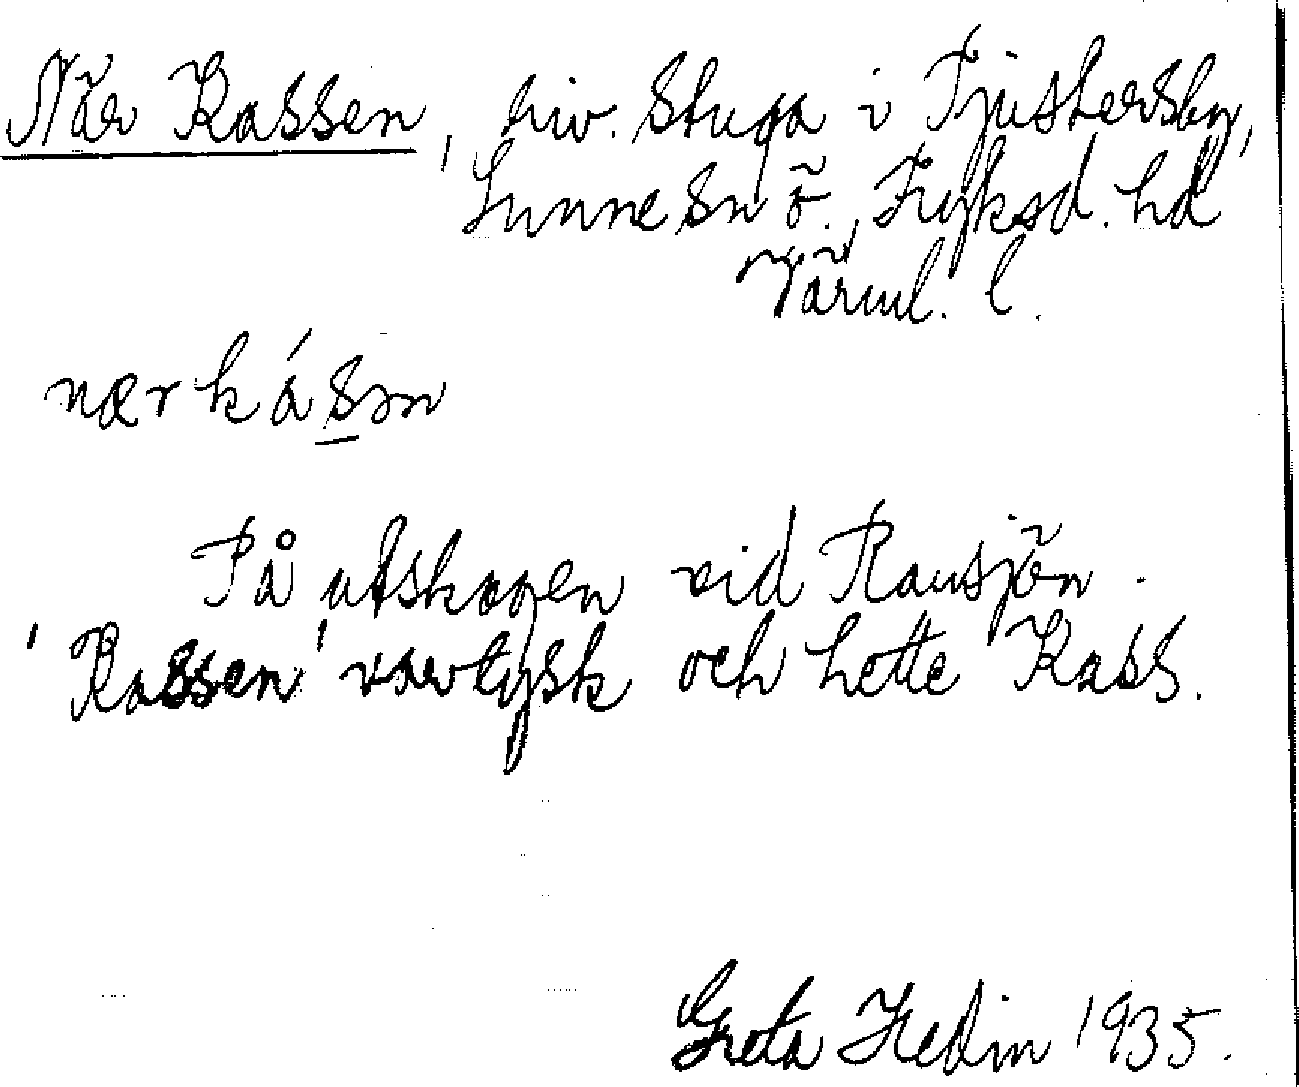 När Kassen, riv. stuga i Tjustersby,
Sunne sn ö. Fryksd. hd
Värml. l.
nær kásən
På utskogen vid Ransjön.
'Kassen' var tysk och hette Kass.
Greta Hedin 1935.